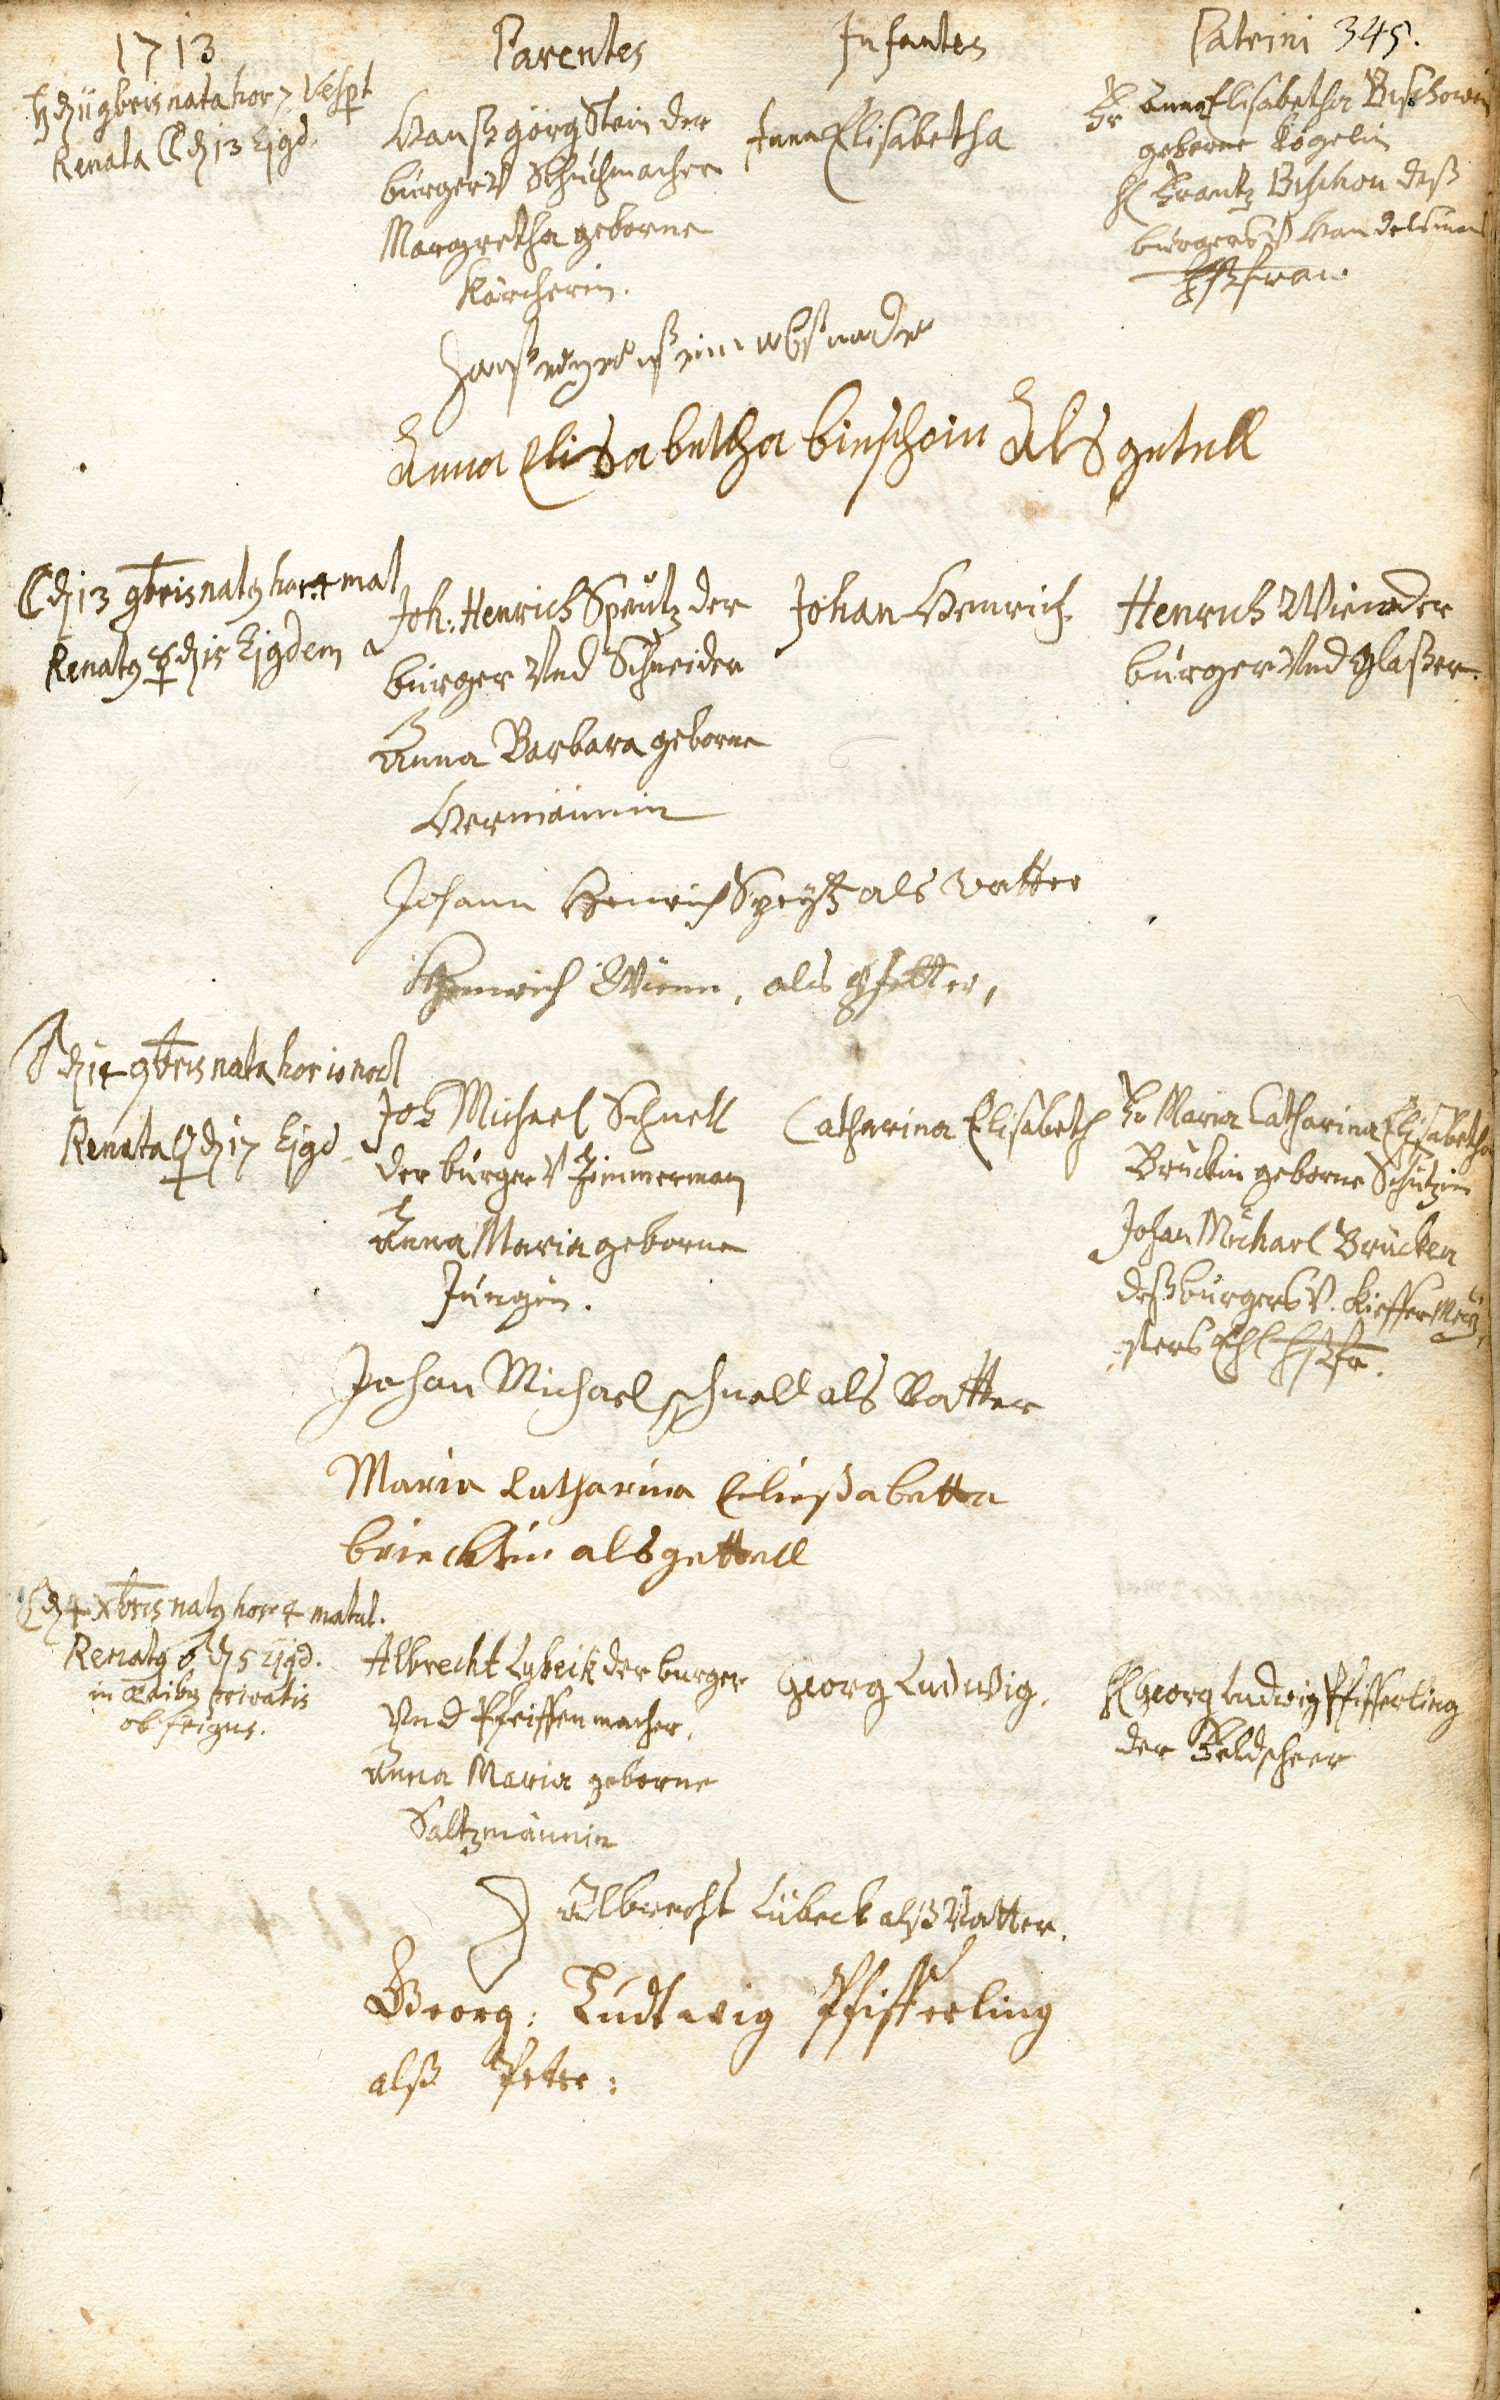 1713 Parentes Infantes Patrini 345.
♄ dj 11 9bris nata hor 7. Vesp
Renata ☾ dj 13 Ejgd.
Hanß Görg Stein der
burger V Schuhmacher
Margretha geborne
Kärcherin.
Anna Elisabetha
Fr Anna Elisabetha Bischowin
geborne Kögelin
H Frantz Bischon deß
burgers V Handelsman
Ehfrau
Anna Elisabetha binschoin Als getell
☾ dj 13 9bris nat9 hor. 4 mat
Renat9 ☿ dj 15 Ejgdem
Joh: Henrich Speutz der
burger Vnd Schneider
Anna Barbara geborne
Hermännin
Johan Henrich
Henrich Wien der
burger Vnd Glaßer.
Johann Henrich Speytz als vatter
Henrich Wienn, als gfetter,
♂ dj 14 9bris nata hor 10 noct
Renata ♀ dj 17 Ejgd
Joh Michael Schnell
der burger V Zimmerman
Anna Maria geborne
Jungin.
Catharina Elisabeth
Fr Maria Catharina Elisabetha
Bruckin geborne Schützin
Johan Michael Brucken
deß burgers V. Kieffer Mei
sters Ehl Hßfr.
Johan Michael Schnell als Vatter
Maria Catharina Eeließabetta
brinckin als gettell
☾ dj 4 Xbris nat9 hor 4 matut.
Renat9 ♂ dj 5 ejgd.
in ædib9 privatis
ob frigus.
Albrecht Lybeck der burger
Vnd Pfeiffenmacher.
Anna Maria geborne
Saltzmännin
Georg Ludwig.
H Georg Ludwig Pfifferling
der Feldscheer
Albrecht Lübeck alß Vatter.
Georg: Ludtwig Pfifferling
alß Peter: